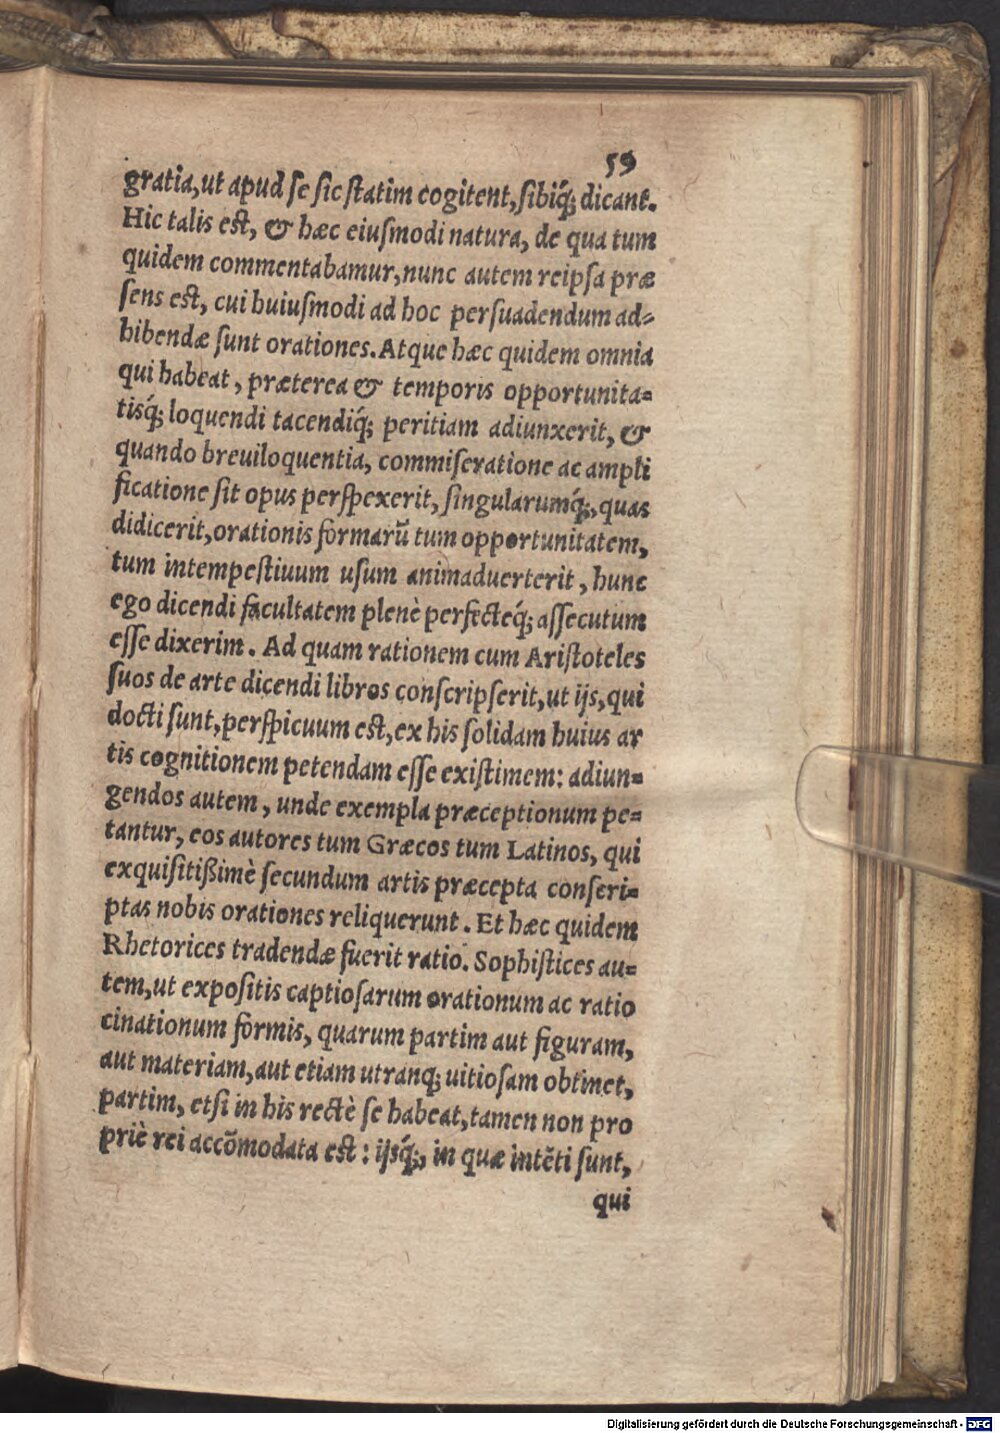 59
gratia, ut apud se sic statim cogitent, sibiq́; dicant.
Hic talis est, & hæc eiusmodi natura, de qua tum
quidem commentabamur, nunc autem reipsa præ
sens est, cui huiusmodi ad hoc persuadendum ad-
hibendæ sunt orationes. Atque hæc quidem omnia
qui habeat, præterea & temporis opportunita-
tisq́; loquendi tacendiq́; peritiam adiunxerit, &
quando breuiloquentia, commiseratione ac ampli
ficatione sit opus perspexerit, singularumq́;, quas
didicerit, orationis formarũ tum opportunitatem,
tum intempestiuum usum animaduerterit, hunc
ego dicendi facultatem plenè perfecteq́; assecutum
esse dixerim. Ad quam rationem cum Aristoteles
suos de arte dicendi libros conscripserit, ut ijs, qui
docti sunt, perspicuum est, ex his solidam huius ar
tis cognitionem petendam esse existimem: adiun-
gendos autem, unde exempla præceptionum pe-
tantur, eos autores tum Græcos tum Latinos, qui
exquisitißimè secundum artis præcepta conscri-
ptas nobis orationes reliquerunt. Et hæc quidem
Rhetorices tradendæ fuerit ratio. Sophistices au-
tem, ut expositis captiosarum orationum ac ratio
cinationum formis, quarum partim aut figuram,
aut materiam, aut etiam utranq; uitiosam obtinet,
partim, etsi in his rectè se habeat, tamen non pro
priè rei accõmodata est: ijsq́;, in quæ intẽti sunt,
qui
Digitalisierung gefördert durch die Deutsche Forschungsgemeinschaft - DFG